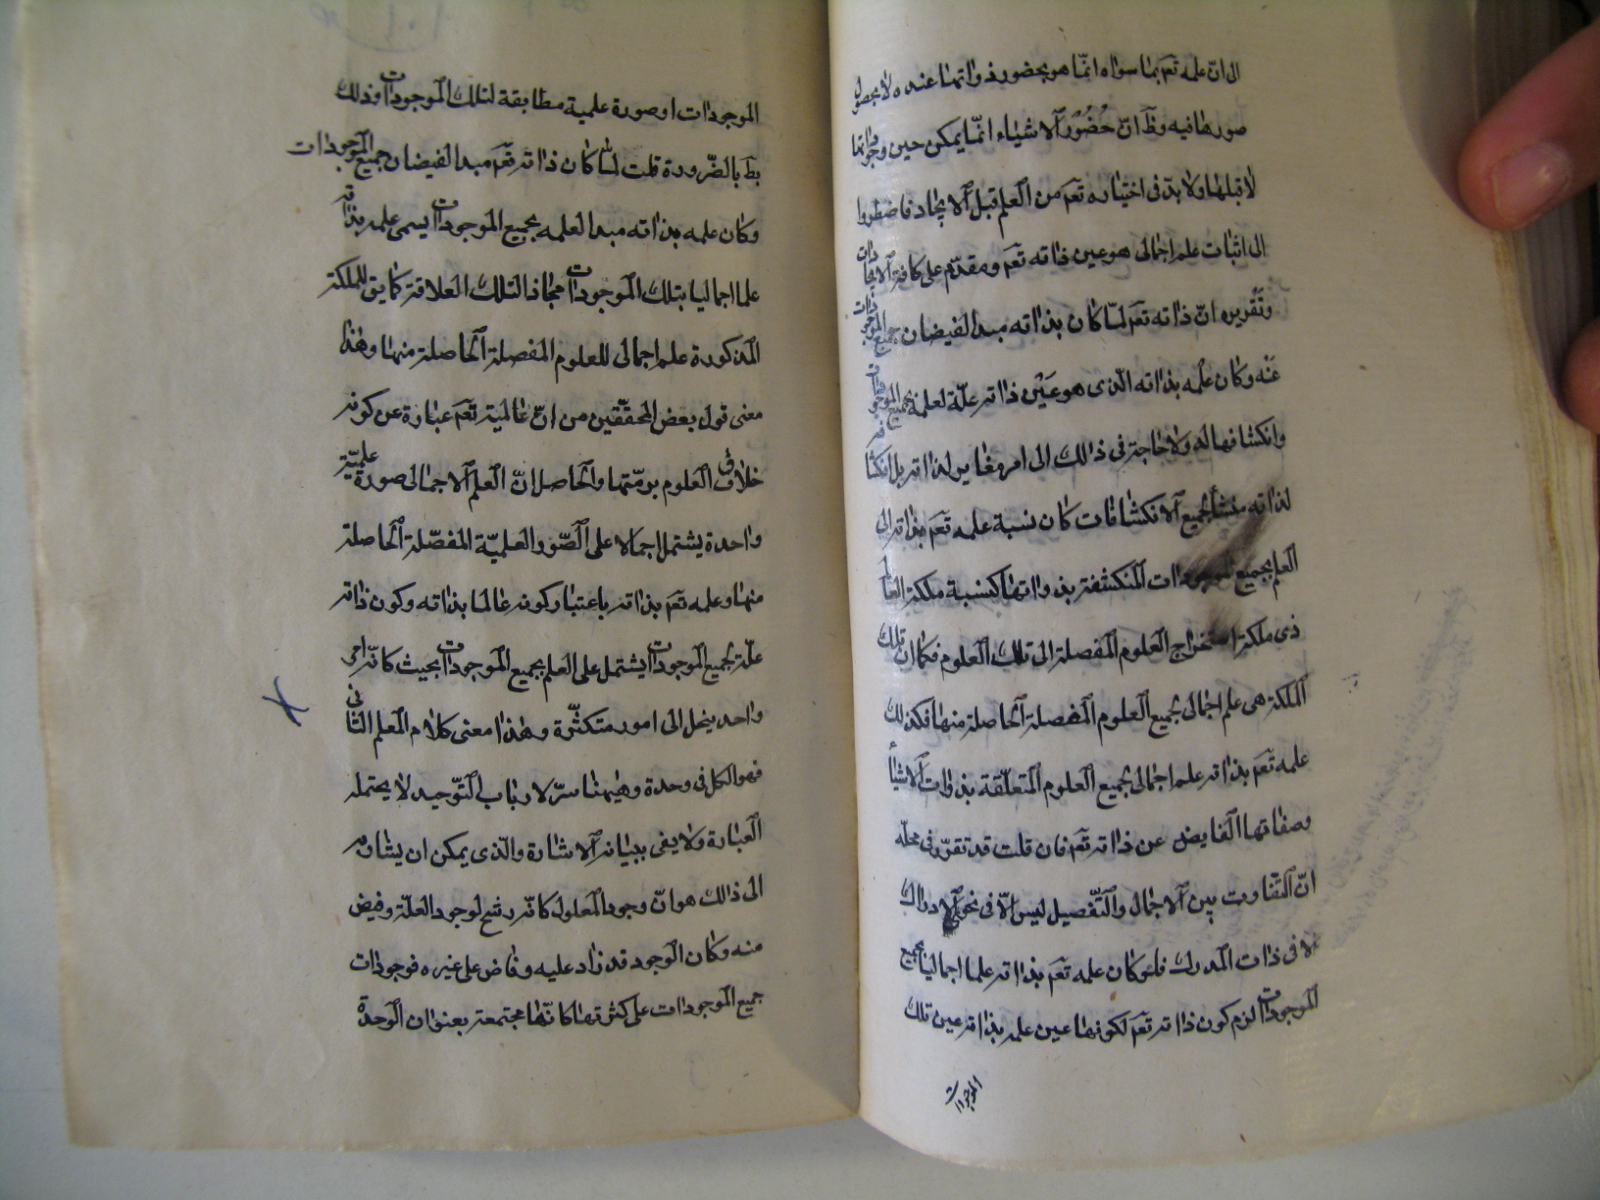 الى ان علمه تعم بما سواه انما هو بحضور ذواتها عنده لا بحصول
صورها فيه وظ ان حضور الاشياء انما يمكن حين وجوداتها
لا قبلها ولا بد فى اختياره تعم من العلم قبل الايجاد فاضطروا
الى اثبات علم اجمالى هو عين ذاته تعم ومقدم على كافة الايجادات
وتقريره ان ذاته تعم لما كان بذاته مبدا لفيضان جميع الموجودات
عنه وكان علمه بذاته الذى هو عين ذاته علة لعلمه بجميع الموجودات
وانكشافها له ولا حاجة فى ذالك الى امر مغاير لذاته بل انكشافه
لذاته منشأ لجميع الانكشافات كان نسبة علمه تعم بذاته الى
العلم بجميع الموجودات المنكشفة بذواتها كنسبة ملكة العالم
ذى ملكة استخراج العلوم المفصلة الى تلك العلوم فكما ان تلك
الملكة هى علم اجمالى بجميع العلوم المفصلة الحاصلة منها فكذلك
علمه تعم بذاته علم اجمالى بجميع العلوم المتعلقة بذوات الاشيأ
وصفاتها الفايض عن ذاته تعم فان قلت قد تقرر فى محله
ان التفاوت بين الاجمال والتفصيل ليس الا فى نحو الادراك
لا فى ذات المدرك فلو كان علمه تعم بذاته علما اجماليا بجميع
الموجودات لزم كون ذاته تعم لكونها عين علمه بذاته عين تلك
الموجودات
الموجودات او صورة علمية مطابقة لتلك الموجودات وذلك
بط بالضرورة قلت لما كان ذاته تعم مبدا لفيضان جميع الموجودات
وكان علمه بذاته مبدا لعلمه بجميع الموجودات يسمى علمه بذاته
علما اجماليا بتلك الموجودات مجازا لتلك العلاقة كما يق للملكة
المذكورة علم اجمالى للعلوم المفصلة الحاصلة منها وهذا
معنى قول بعض المحققين من ان عالمية تعم عبارة عن كونه
خلاق العلوم برمتها والحاصل ان العلم الاجمالى صورة علمية
واحدة يشتمل اجمالا على الصور العلمية المفصلة الحاصلة
منها وعلمه تعم بذاته باعتبار كونه عالما بذاته وكون ذاته
علة لجميع الموجودات يشتمل على العلم بجميع الموجودات بحيث كانه امر
واحد ينحل الى امور متكثرة وهذا معنى كلام المعلم الثانى
فهو الكل فى وحدة وهيهنا سر لارباب التوحيد لا يحتمله
العبارة ولا يفى ببيانه الاشارة والذى يمكن ان يشار به
الى ذالك هو ان وجود المعلول كانه رشح لوجود العلة وفيض
منه وكان الوجود قد زاد عليه وفاض على غيره فوجودات
جميع الموجودات على كثرتها كانها مجتمعة بعنوان الوحدة